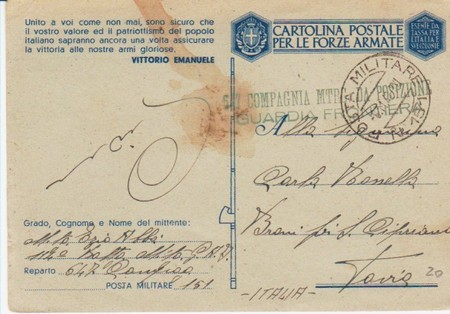 Unito a voi come non mai, sono sicuro che
il vostro valore ed il patriottismo del popolo
italiano sapranno ancora una volta assicurare
la vittoria alle nostre armi gloriose.
VITTORIO EMANUELE
CARTOLINA POSTALE
PER LE FORZE ARMATE
ESENTE DA
TASSA PER
L'ITALIA E
COMPAGNIA MTR. DA POSIZIONE
GUARDIA FRONTIERA
POSTA MILITARE
Alla Signorina
Carla
Broni per S. Cipriano
Pavia
-ITALIA-
20
Grado, Cognome e Nome del mittente:
Ezio
112°
Reparto 647
POSTA MILITARE 151